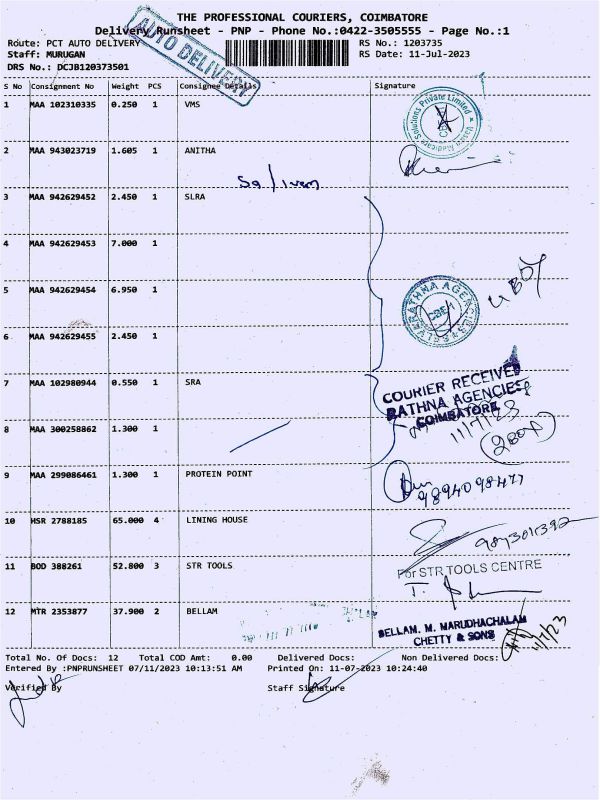 THE PROFESSIONAL COURIERS, COIMBATORE
Delivery Runsheet - PNP - Phone No.:0422-3505555 - Page No.:1
Route: PCT AUTO DELIVERY
RS No.: 1203735
Staff: MURUGAN
RS Date: 11-Jul-2023
DRS No.: DCJB120373501
AUTO DELIVERY
S No Consignment No Weight PCS Consignee Details Signature
1 MAA 102310335 0.250 1 VMS
2 MAA 943023719 1.605 1 ANITHA
3 MAA 942629452 2.450 1 SLRA
4 MAA 942629453 7.000 1
5 MAA 942629454 6.950 1
6 MAA 942629455 2.450 1
7 MAA 102980944 0.550 1 SRA
COURIER RECEIVED
RATHNA AGENCIES
COIMBATORE
11/7/23
8 MAA 300258862 1.300 1
9 MAA 299086461 1.300 1 PROTEIN POINT
9894098477
10 HSR 2788185 65.000 4 LINING HOUSE
11 BOD 388261 52.800 3 STR TOOLS
For STR TOOLS CENTRE
12 MTR 2353877 37.900 2 BELLAM
BELLAM. M. MARUDHACHALAM
CHETTY & SONS
11/7/23
Total No. Of Docs: 12 Total COD Amt: 0.00 Delivered Docs: Non Delivered Docs:
Entered By :PNPRUNSHEET 07/11/2023 10:13:51 AM Printed On: 11-07-2023 10:24:40
Verified By Staff Signature